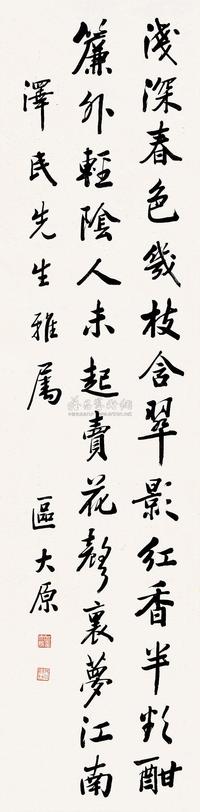 淺深春色幾枝含翠影紅香半欲酣
簾外輕陰人未起賣花聲裏夢江南
澤民先生雅屬
區大原